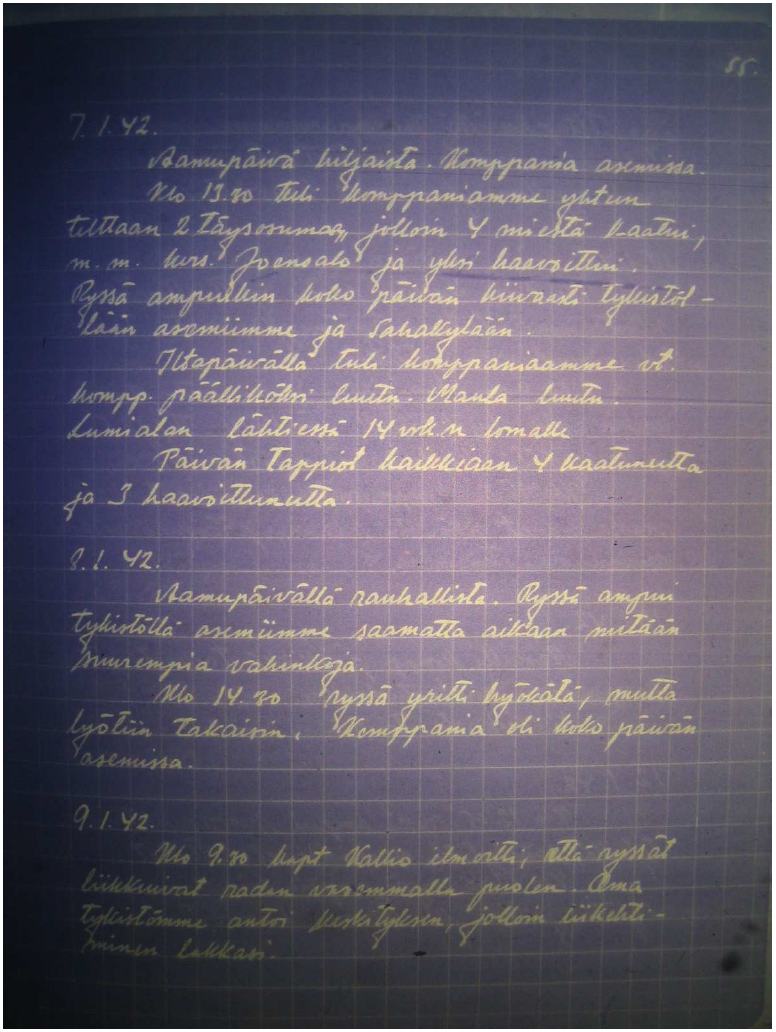 55.
7.1.42.
Aamupäivä hiljaista. Komppania asemissa.
Klo 13.30 tuli komppaniamme yhteen
telttaan 2 täysosumaa, jolloin 4 miestä kaatui,
m.m. kers. Joensalo ja yksi haavoittui.
Ryssä ampuikin koko päivän kiivaasti tykistöl-
lään asemiimme ja Sahakylään.
Iltapäivällä tuli komppaniaamme vt.
kompp. päälliköksi luutn. Maula luutn.
Lumialan lähtiessä 14 vrk:n lomalle
Päivän tappiot kaikkiaan 4 kaatunutta
ja 3 haavoittunutta.
8.1.42.
Aamupäivällä rauhallista. Ryssä ampui
tykistöllä asemiimme saamatta aikaan mitään
suurempia vahinkoja.
Klo 14.30 ryssä yritti hyökätä, mutta
lyötiin takaisin. Komppania oli koko päivän
asemissa.
9.1.42.
Klo 9.30 kapt Kallio ilmoitti, että ryssät
liikkuivat radan vasemmalla puolen. Oma
tykistömme antoi keskityksen, jolloin liikehti-
minen lakkasi.